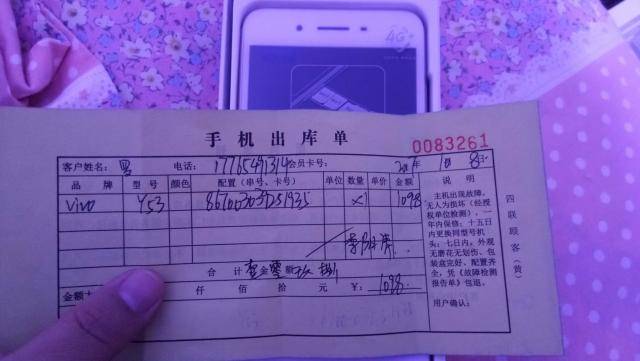 4G+
手机出库单
0083261
客户姓名： 电话：17765491314 会员卡号： 年 10月8日
品牌 型号 颜色 配置（串号、卡号） 单位 数量 单价 金额
vivo Y53 ×1 1098
合计金额
金额大 仟 佰 拾 元 ¥：1098.
说明
主机出现故障，
无人为损坏（经授
权单位检测），一
年内保修；十五日
内更换同型号机
头；七日内，外观
无磨花无划伤、包
装盒完好、配置齐
全，凭《故障检测
报告单》包退。
用户确认：
四联顾客（黄）